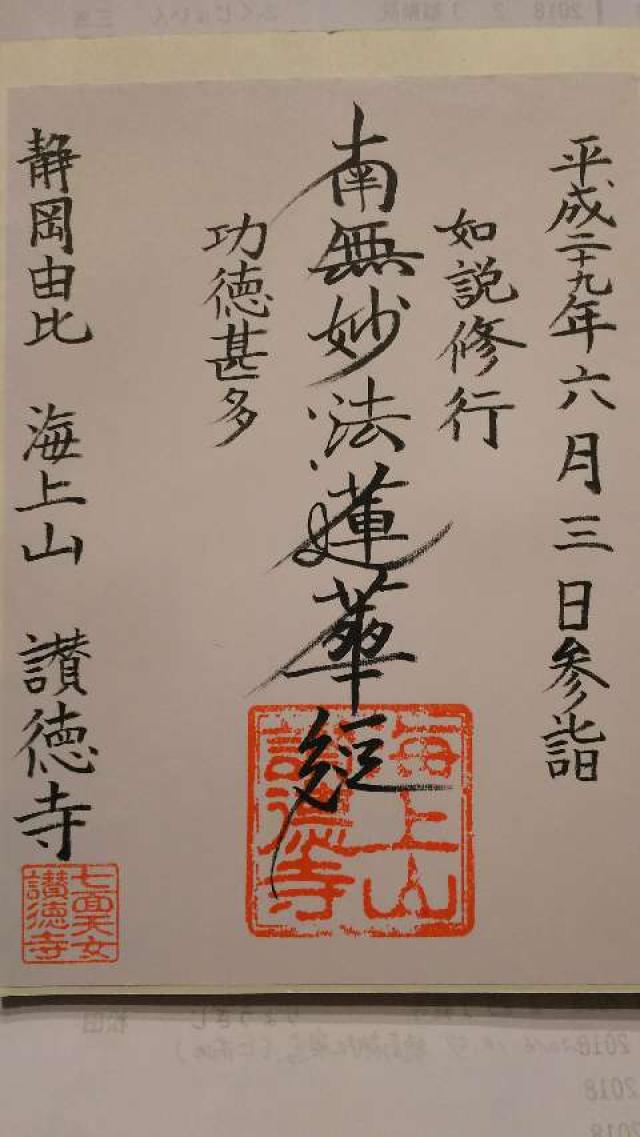 平成二十九年六月三日参詣
如説修行
南無妙法蓮華経
功徳甚多
静岡由比 海上山 讃徳寺
海上山
讃徳寺
七面天女
讃徳寺
2018
2018